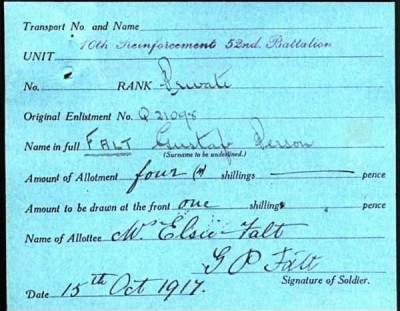 Transport No. and Name
UNIT 10th Reinforcement 52nd. Battalion
No. RANK Private
Original Enlistment No. Q 21098
Name in full FALT Gustaf Person
(Surname to be underlined.)
Amount of Allotment four (4) shillings pence
Amount to be drawn at the front one shillings pence
Name of Allottee Mrs Elsie Falt
G P Fält
Signature of Soldier.
Date 15th Oct 1917.